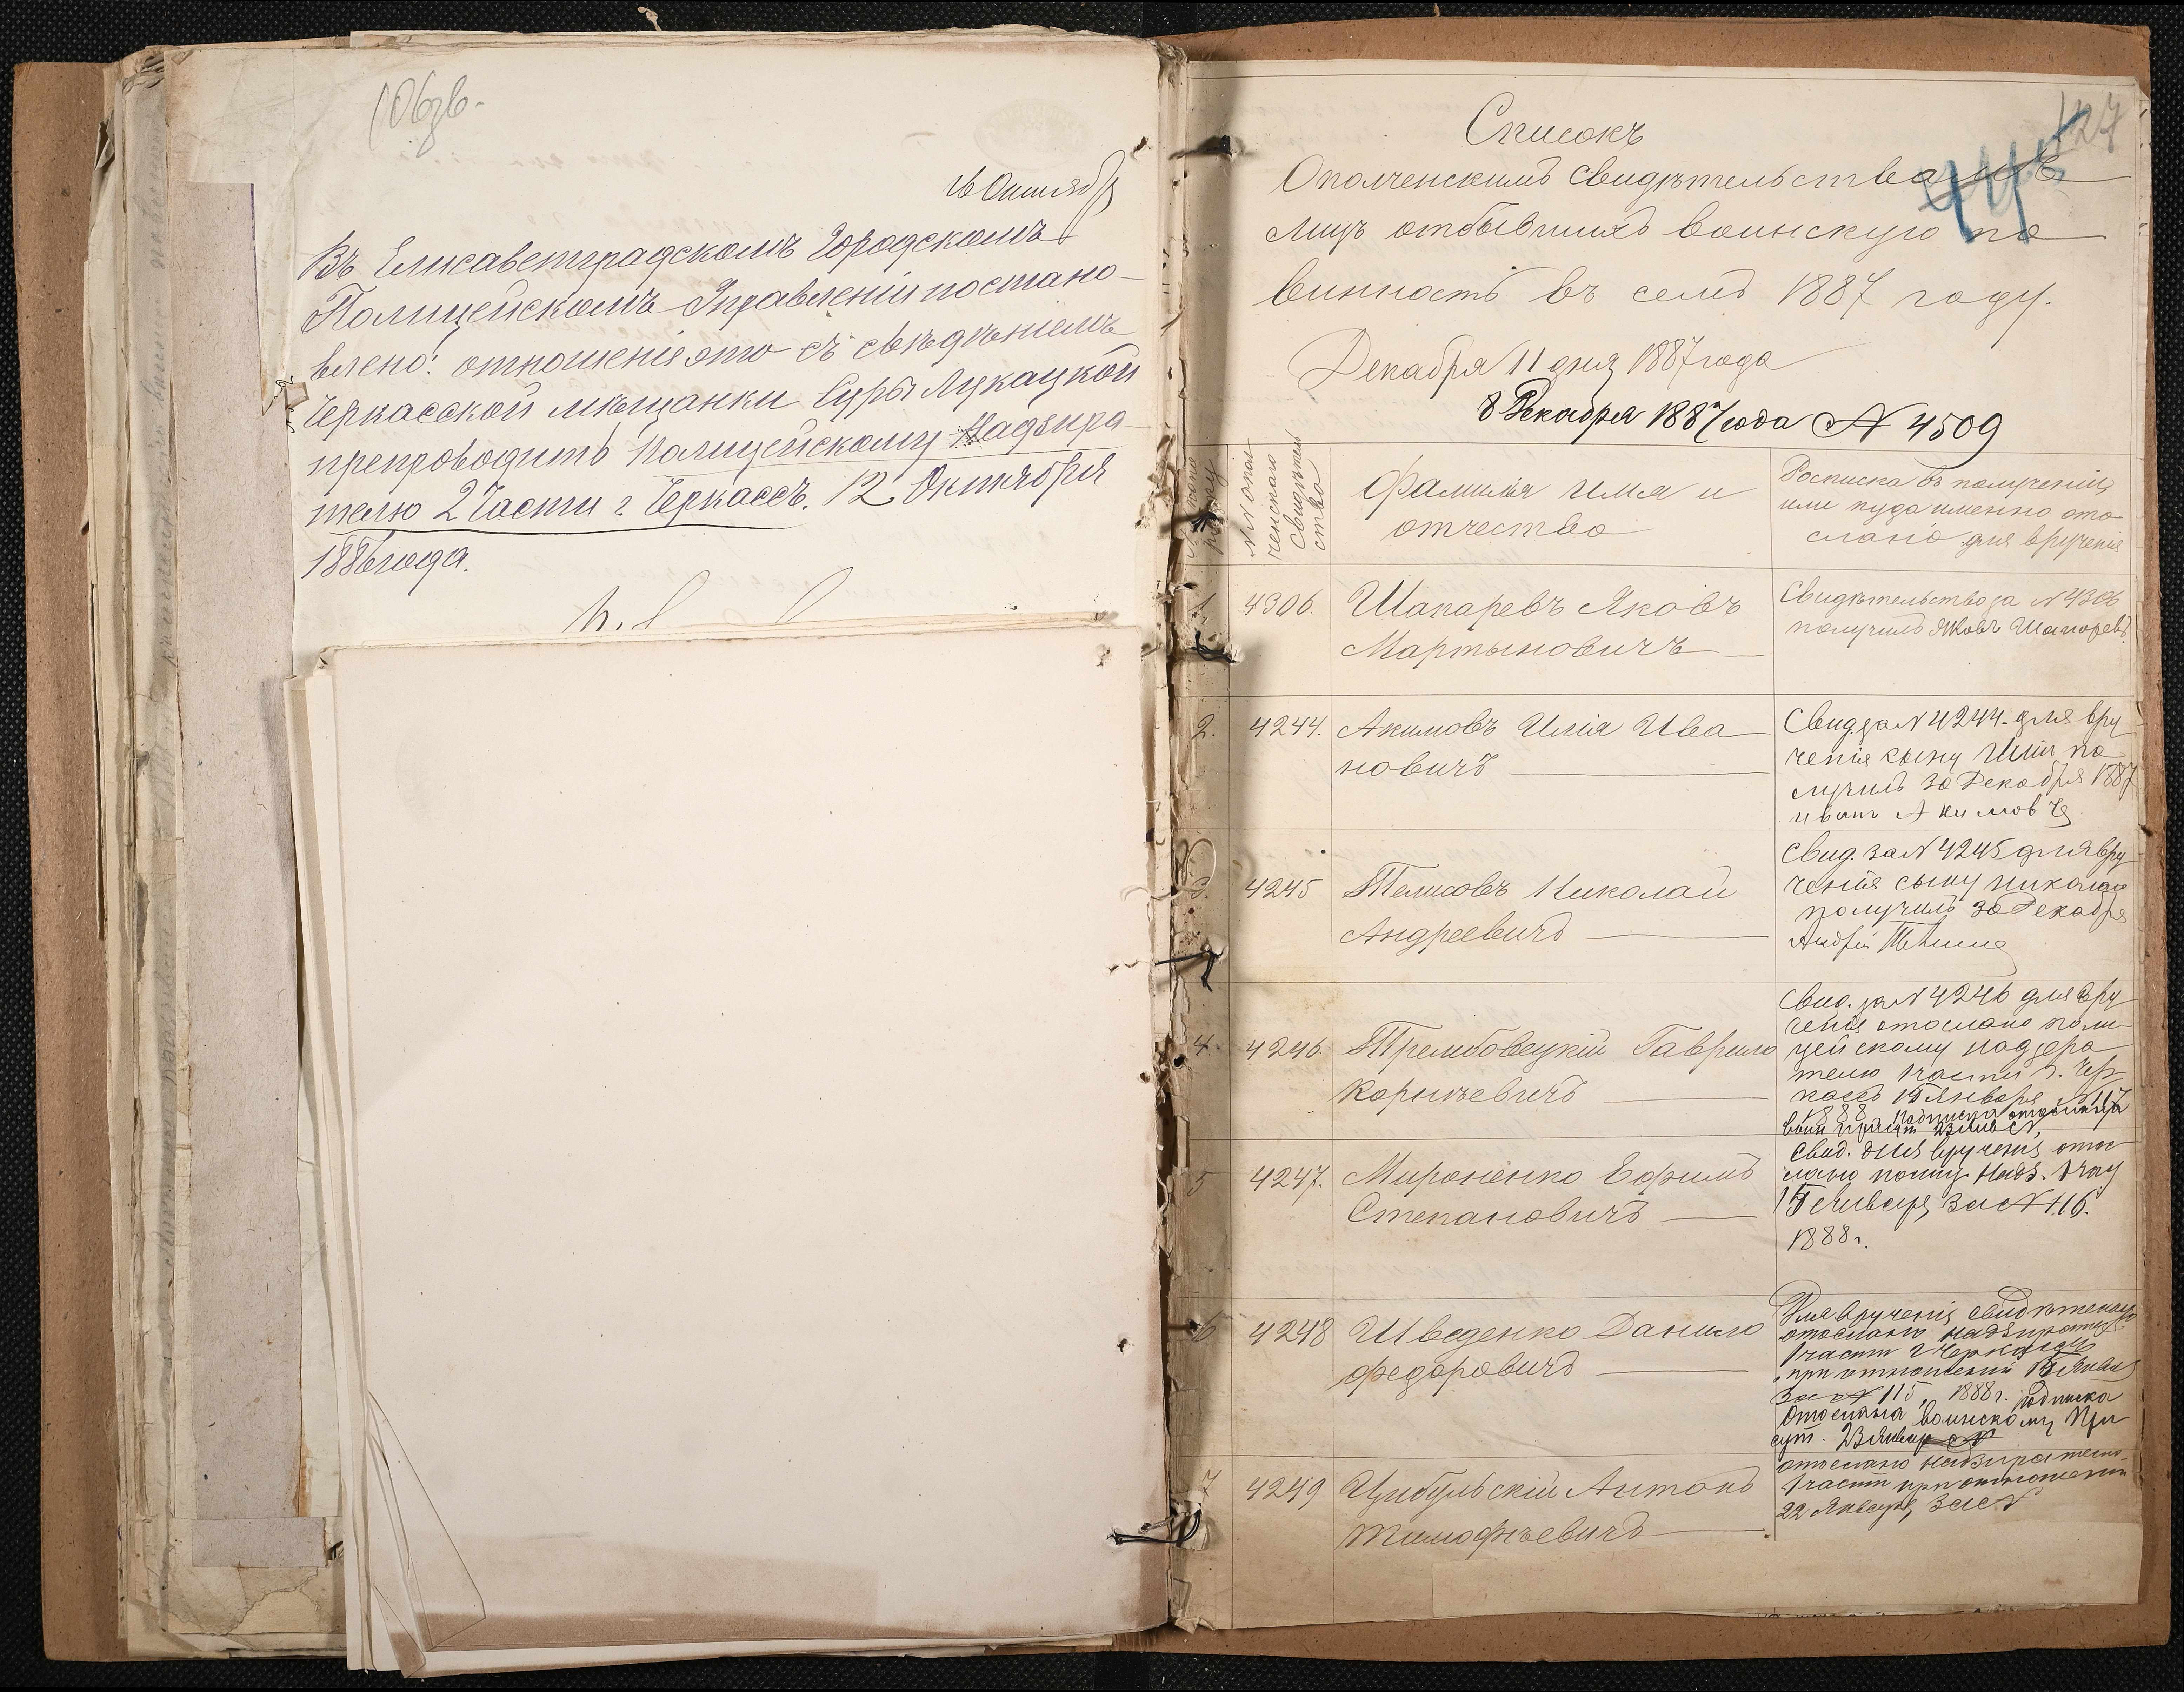 106 зв.
Октября
Въ Елисаветградскомъ Городскомъ
Полицейскомъ Управленіи постано-
влено: отношеніе это съ свѣдѣніемъ
Черкасской мѣщанки Суры Лукацкой
препроводить Полицейскому Надзира-
телю 2 Части г. Черкассъ. 12 Октября
1886 года.
127
Списокъ
Ополченскимъ свидѣтельствамъ
лицъ отбывшихъ воинскую по
винность въ семъ 1887 году.
Декабря 11 дня 1887 года
8 Декабря 1887 года № 4509
№№ опол
ченскаго
свидѣтель
ства
Фамилія имя и
отчество
Росписка въ полученіи
или куда именно ото
слано для врученія
1. 4306. Шапаревъ Яковъ
Мартыновичъ
Свидѣтельство за №4306
получилъ Яковъ Шапоревъ
2. 4244. Акимовъ Илія Ива
новичъ
Свид. за №4244. для вру
ченія сыну Иліи по
лучилъ 30 Декабря 1887
иванъ Акимовъ
3. 4245 Телисовъ Николай
Андреевичъ
Свид. за №4245 для вру
ченія сыну николаю
получилъ 30 Декабря
Андрѣй
4. 4246. Трембовецкій Гаврило
Корнѣевичъ
Свид. за №4246 для вру
ченія отослано поли-
цейскому надзера
телю 1 части г. Чер
кассъ 15 Января №117
1888 г. Подписка отослана
воин прису 23 янв №
5 4247. Мироненко Ефимъ
Степановичъ
Свид. для врученія отос
лано полиц. Надз. 1 час
15 Января за №116.
1888 г.
6 4248 Шведенко Данило
Федоровичъ
Для врученія свидѣтельство
отослано надзирателю
1 части г Черкассъ
при отношеніи 15 Января
за № 115, 1888 г. подписка
Отослана воинскому При
сут. 23 Январ №
7 4249 Цибульскій Антонъ
Тимофѣевичъ
отослано надзирателю
1 части при отношеніи
22 Января, за №